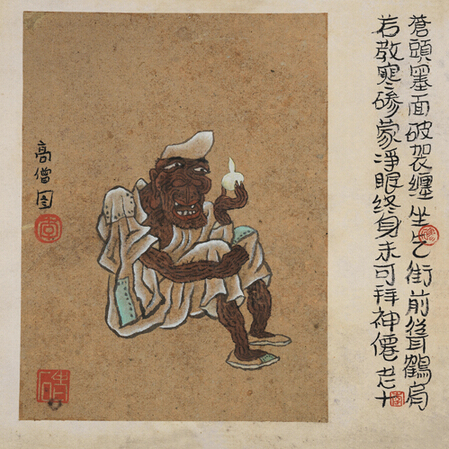 蒼頭墨面破袈纏坐乞街前聳鶴肩
若教寒碜蒙淨眼終身未可拜神僊老十
高僧图